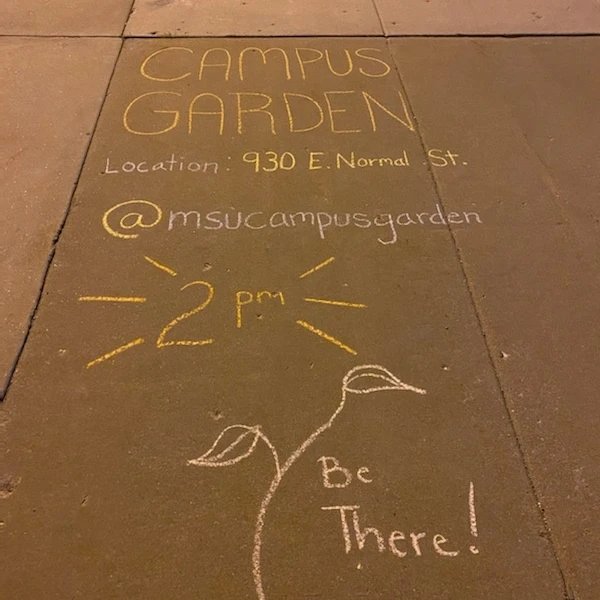 CAMPUS
GARDEN
Location: 930 E. Normal St.
@msucampusgarden
2 pm
Be
There!